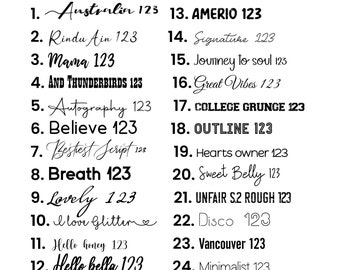 1. Australia 123
2. Rindu Ain 123
3. Mama 123
4. AND THUNDERBIRDS 123
5. Autography 123
6. Believe 123
7. Bestiest Script 123
8. Breath 123
9. Lovely 123
10. I love Glitter
11. Hello honey 123
12. Hello bella 123
13. AMERIO 123
14. Signature 123
15. Journey to soul 123
16. Great Vibes 123
17. COLLEGE GRUNGE 123
18. OUTLINE 123
19. Hearts owner 123
20. Sweet Belly 123
21. UNFAIR S2 ROUGH 123
22. Disco 123
23. Vancouver 123
24. Minimalist 123